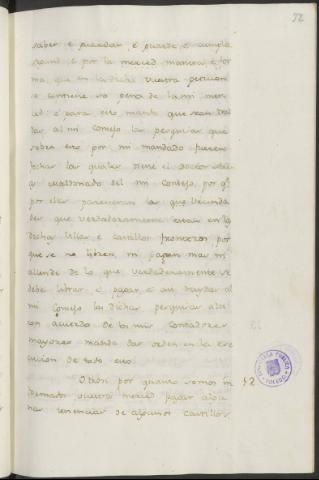 52
saber e guardar, e guarde e cumpla
segund e por la merced manera e for
ma, que en la dicha vuestra peticion
se contiene so pena de la mi mer
ced: e para esto mando que sean trai
das al mi Consejo las pesquisas que
sobre esto por mi mandado fueron
fechas las quales tiene el Doctor
Maldonado del mi Consejo, por q.e
por ellas pareceran las que se funda
der que verdaderamente estan en las
dichas Villas e Castillos fronteros, por
que se no libren, ni paguen mas ni
allende de lo que verdaderamente se
debe librar e pagar e au das al
mi Consejo las dichas pesquisas
con acuerdo de los mis Contadores
mayores manda dar orden en la exe
cucion de todo esto.
Otrosi por quanto somos in
formados vuestra merced
tenencias de algunos castillos
52
BIBLIOTECA PUBLICA
TOLEDO